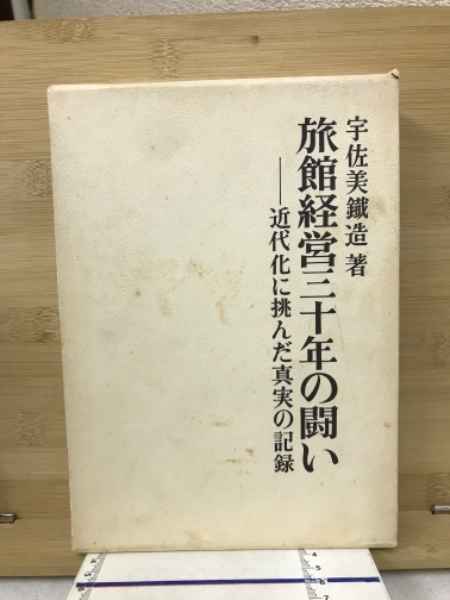 宇佐美鐵造 著
旅館経営三十年の闘い
──近代化に挑んだ真実の記録
4
5
6
7